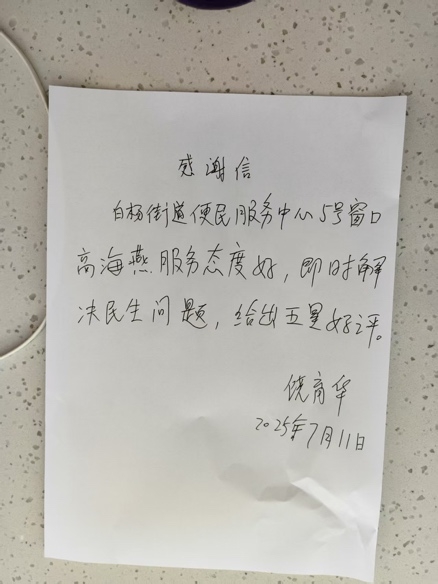 感谢信
白杨街道便民服务中心5号窗口
高海燕服务态度好，即时解
决民生问题，给出五星好评。
饶育华
2025年7月11日